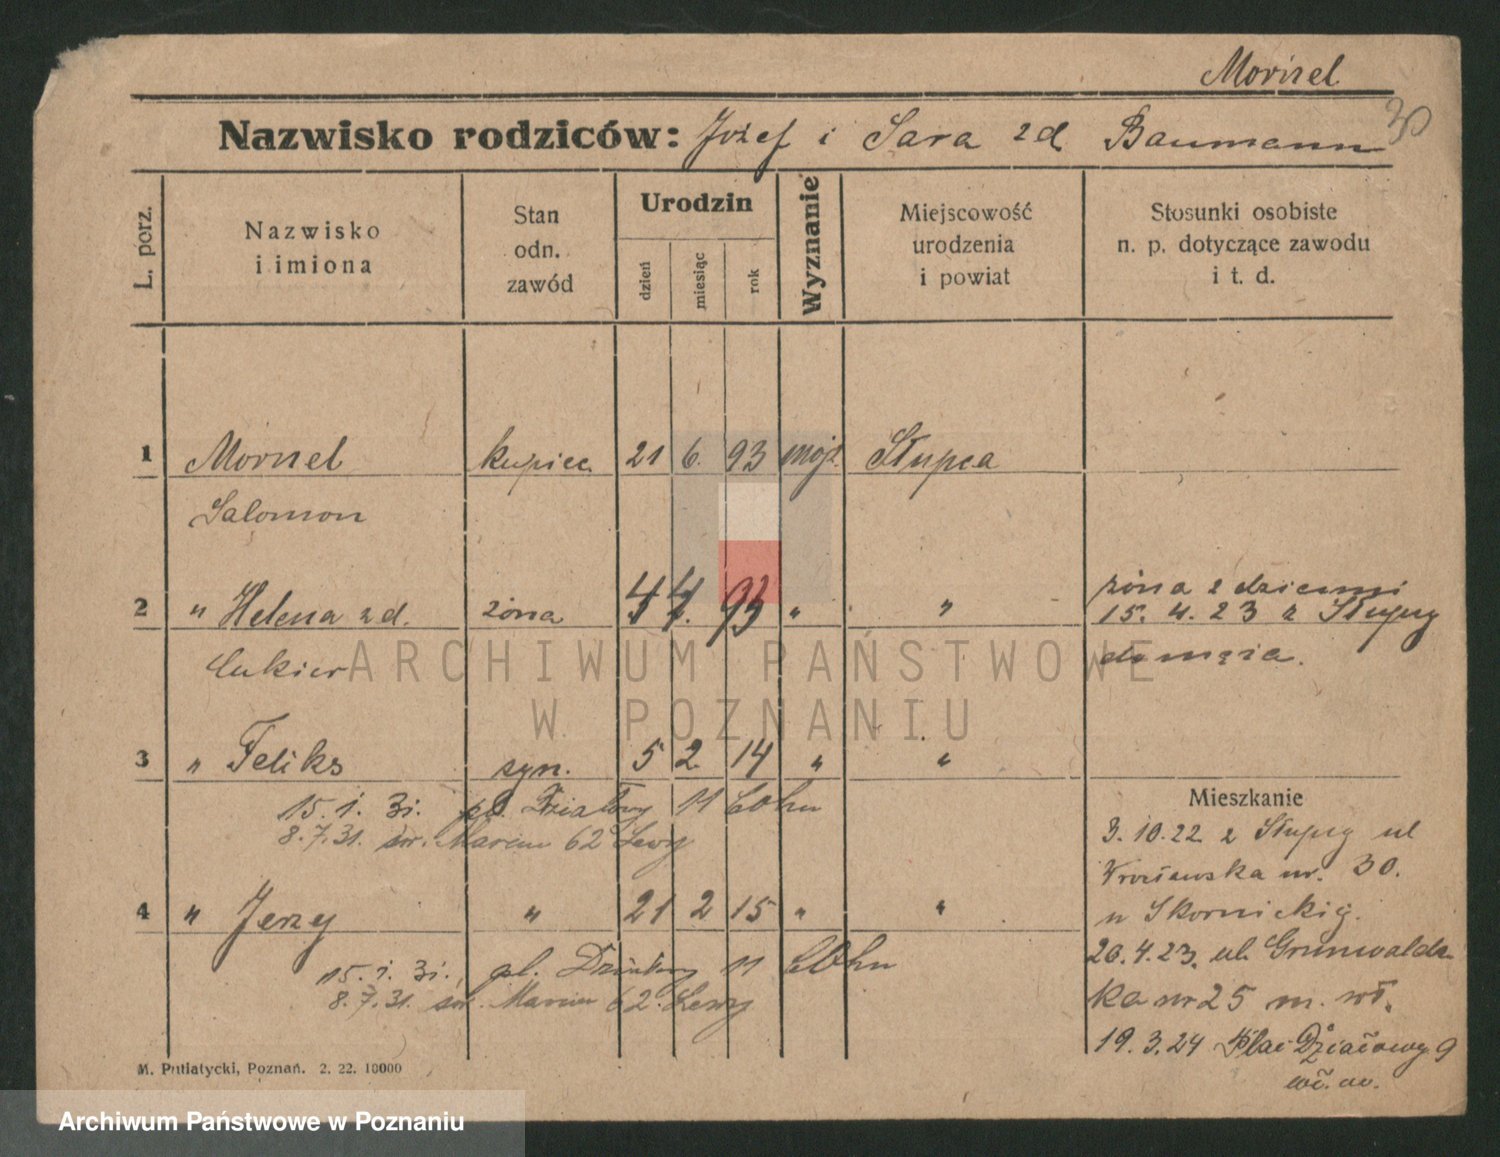 Mornel
30
Nazwisko rodziców: Józef i Sara zd Baumann
L. porz.
Nazwisko
i imiona
Stan
odn.
zawód
Urodzin
dzień
miesiąc
rok
Wyznanie
Miejscowość
urodzenia
i powiat
Stosunki osobiste
n. p. dotyczące zawodu
i t. d.
1 Mornel kupiec 21 6. 93 mojż. Słupca
Salomon
2 " Helena zd. żona 4 4. 93 " "
Cukier
żona z dziećmi
15. 4. 23 z Słupcy
do męża.
3 " Feliks syn. 5 2 14 " "
15. 1. 31. pl. Działowy 11 Cohn
8. 7. 31. św. Marcin 62 Lewy
4 " Jerzy " 21 2 15 " "
15. 1. 31. pl. Działowy 11 Cohn
8. 7. 31. św. Marcin 62. Lewy
Mieszkanie
3. 10. 22 z Słupcy ul
Wrocławska nr. 30.
u Skornickiej.
26. 4. 23. ul. Grunwaldz-
ka nr 25 m. wł.
19. 3. 24 Plac Działowy 9
M. Putiatycki, Poznań. 2. 22. 10000
ARCHIWUM PAŃSTWOWE
W POZNANIU
Archiwum Państwowe w Poznaniu